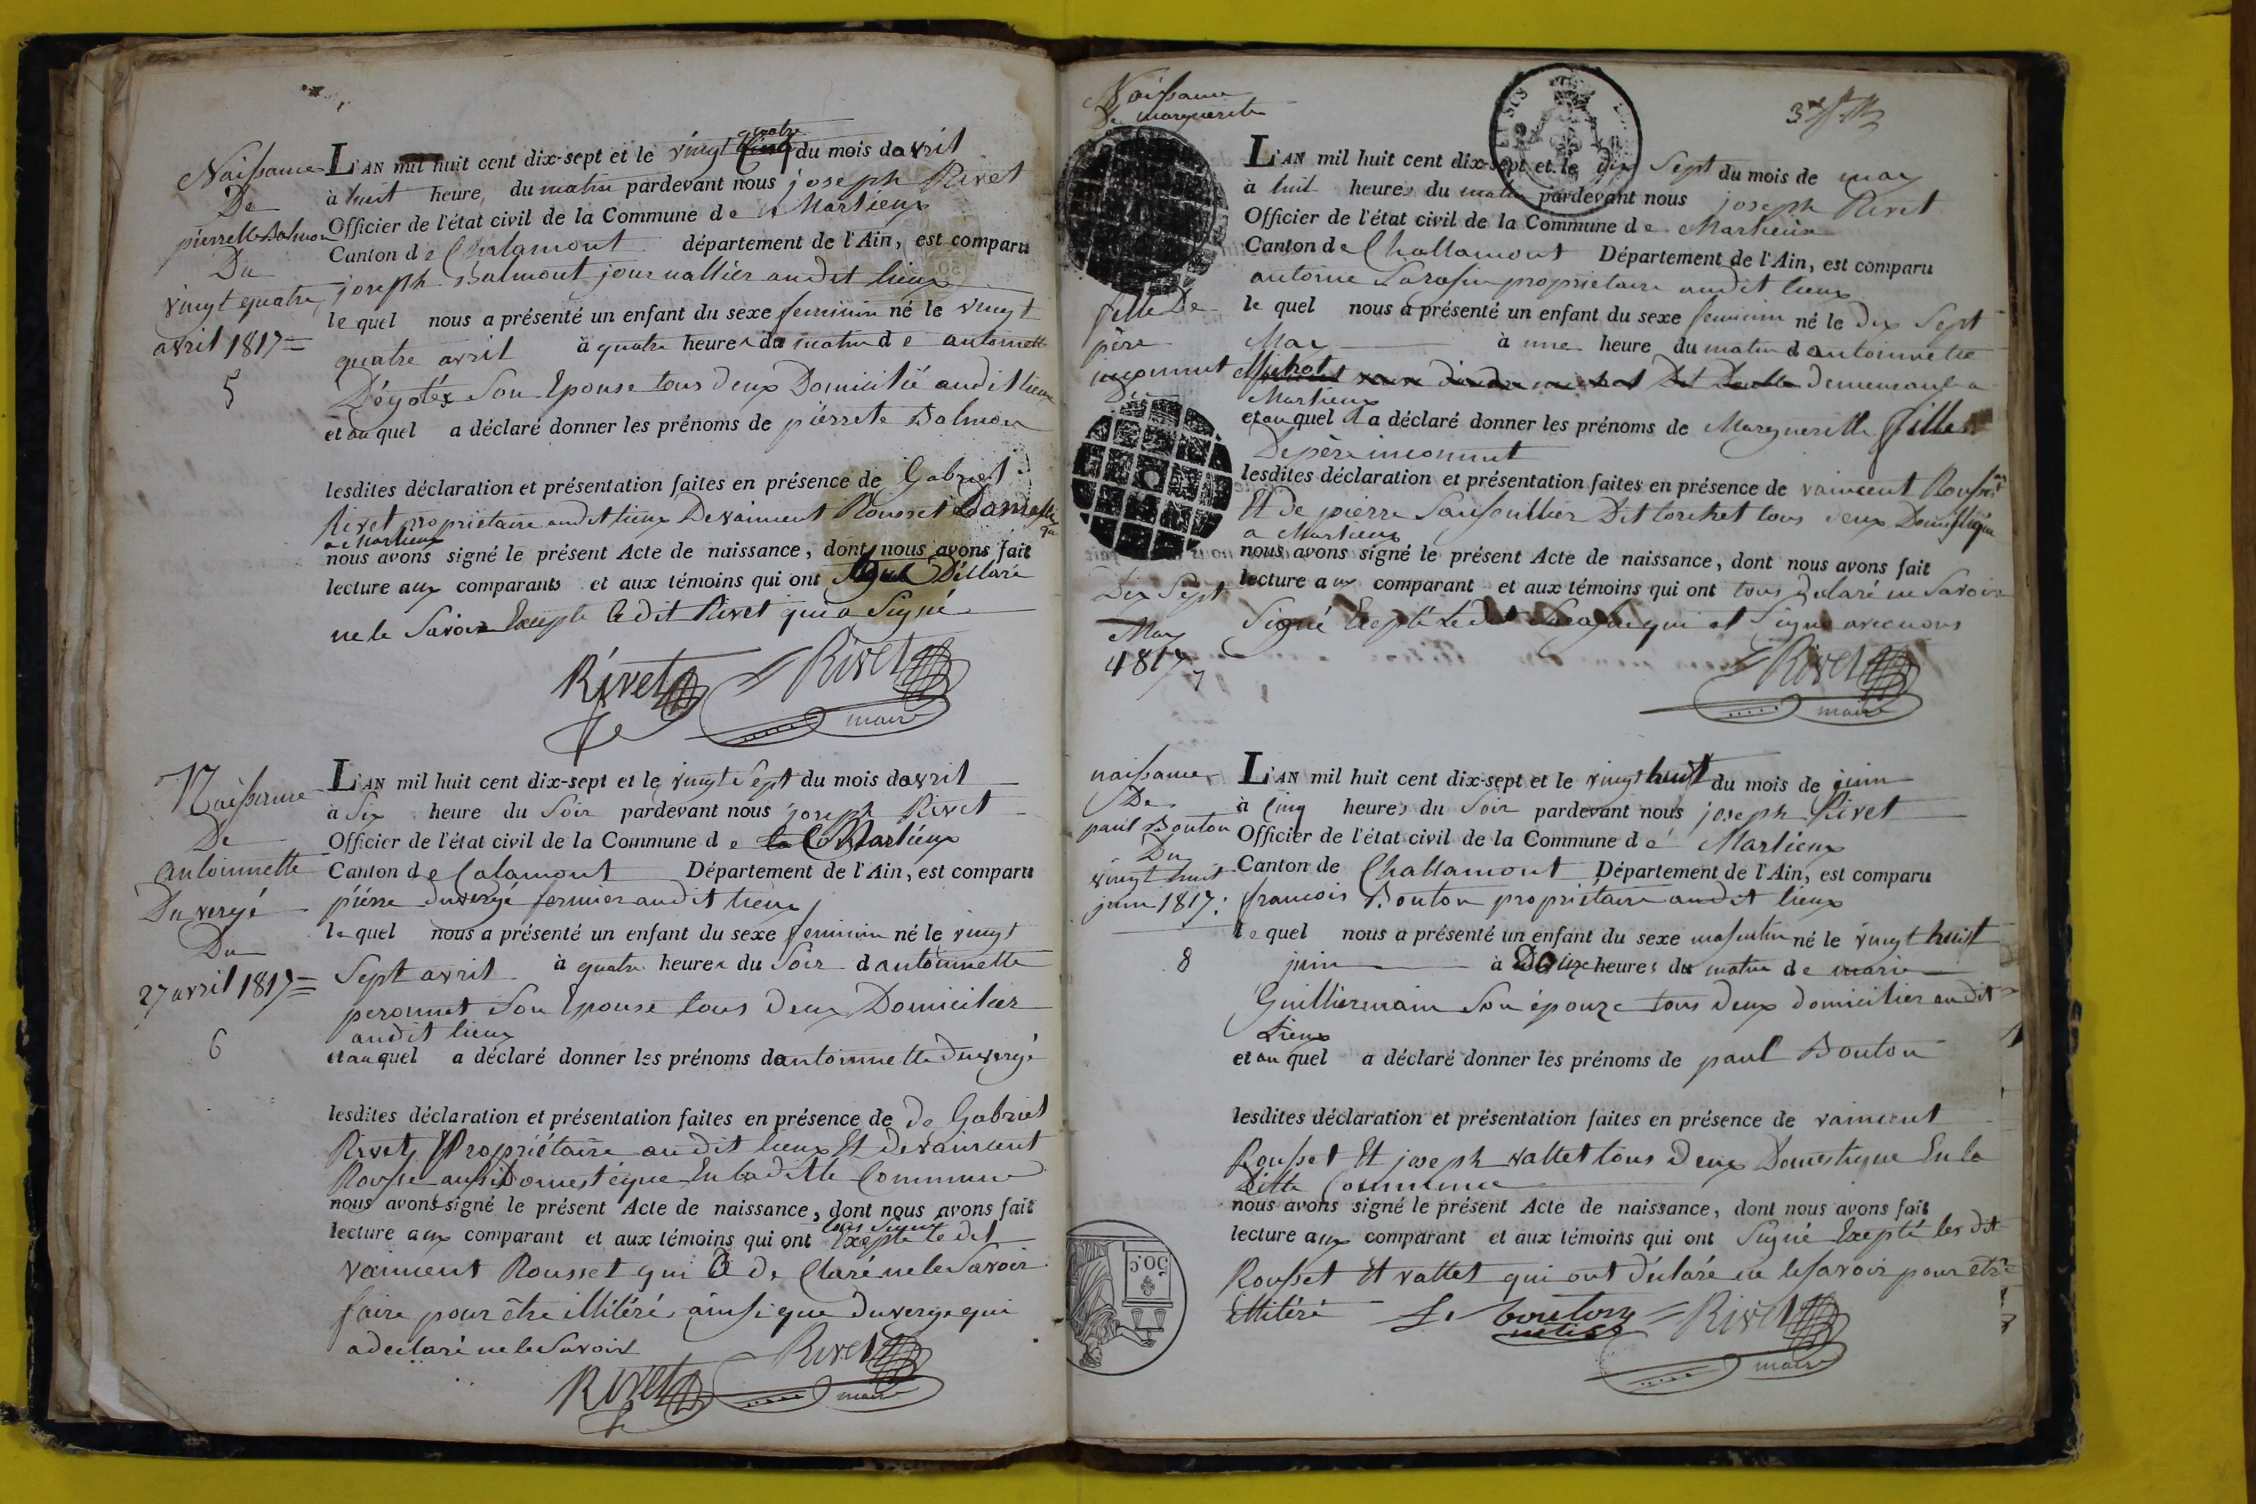 Naissance
De
pierrette Balmon
Du
vingt quatre
avril 1817
5
L'AN mil huit cent dix-sept et le vingt quatre du mois davril
à huit heure, du matin pardevant nous joseph Rivet
Officier de l'état civil de la Commune de Marlieux
Canton de Chalamont département de l'Ain, est comparu
joseph Balmont journallier audit lieux
lequel nous a présenté un enfant du sexe feminin né le vingt
quatre avril à quatre heures du matin de antoinette
Son Epouse tous deux Domicilié audit lieux
et auquel a déclaré donner les prénoms de pierrete Balmon
lesdites déclaration et présentation faites en présence de Gabriel
Rivet propriétaire audit lieux De vaincent Rousset
a Marlieux
nous avons signé le présent Acte de naissance, dont nous avons fait
lecture aux comparants et aux témoins qui ont Déclaré
ne le Savoir Excepte le dit Rivet qui a Signé
Rivet Rivet
maire
Naissance
De
antoinnette
Duvergé
Du
27 avril 1817
6
L'AN mil huit cent dix-sept et le vingt Sept du mois davril
à Six heure du Soir pardevant nous joseph Rivet
Officier de l'état civil de la Commune de Marlieux
Canton de Calamont Département de l'Ain, est comparu
piérre duvergé fermier audit lieux
lequel nous a présenté un enfant du sexe feminin né le vingt
Sept avril à quatre heures du Soir dantoinnette
peronnet Son Epouse tous deux Domicilier
audit lieux
et auquel a déclaré donner les prénoms dantoinnette duvergé
lesdites déclaration et présentation faites en présence de de Gabriel
Rivet Propriétaire audit lieux Et de vaincent
Rousse aussi Domestéque En la ditte Commune
nous avons signé le présent Acte de naissance, dont nous avons fait
lecture aux comparant et aux témoins qui ont tous Signé Exepté le dit
vaincent Rousset qui a de Claré ne le Savoir
faire pour être illitéré ainsi que duverge qui
a declaré ne le Savoir
Rivet Rivet
maire
Naissance
De marguerite
fille De
père
inconnut
Du
Dix Sept
May
1817
7
L'AN mil huit cent dix-sept et le dix Sept du mois de may
à huit heures du matin pardevant nous joseph Rivet
Officier de l'état civil de la Commune de Marlieux
Canton de Challamont Département de l'Ain, est comparu
antoine propriétaire audit lieux
lequel nous a présenté un enfant du sexe feminin né le dix Sept
May à une heure du matin dantoinnette
Michot demeurant a
Marlieux
et auquel il a déclaré donner les prénoms de Marguerite fille
De père inconnut
lesdites déclaration et présentation faites en présence de vaincent Rousset
Et de pierre Dit tous deux Domestique
a Marlieux
nous avons signé le présent Acte de naissance, dont nous avons fait
lecture aux comparant et aux témoins qui ont tous déclaré ne Savoir
Signé Exepté Le dit qui et Signé avec nous
Rivet
maire
naissance
De
paul Bouton
Du
vingt huit
juin 1817
8
L'AN mil huit cent dix-sept et le vingt huit du mois de juin
à Cinq heures du Soir pardevant nous joseph Rivet
Officier de l'état civil de la Commune de Marlieux
Canton de Challamont Département de l'Ain, est comparu
francois Bouton propriétaire audit lieux
lequel nous a présenté un enfant du sexe masculin né le vingt huit
juin à Douze heures du matin de marie
Guilliermain Son épouze tous deux domicilier audit
Lieux
et auquel a déclaré donner les prénoms de paul Bouton
lesdites déclaration et présentation faites en présence de vaincent
Rousset Et joseph vallet tous deux Domestique En la
ditte Commune
nous avons signé le présent Acte de naissance, dont nous avons fait
lecture aux comparant et aux témoins qui ont Signé Exepté les dit
Rousset Et vallet qui ont déclaré ne le savoir pour etre
illitéré f. bouton Rivet
maire
50 C.